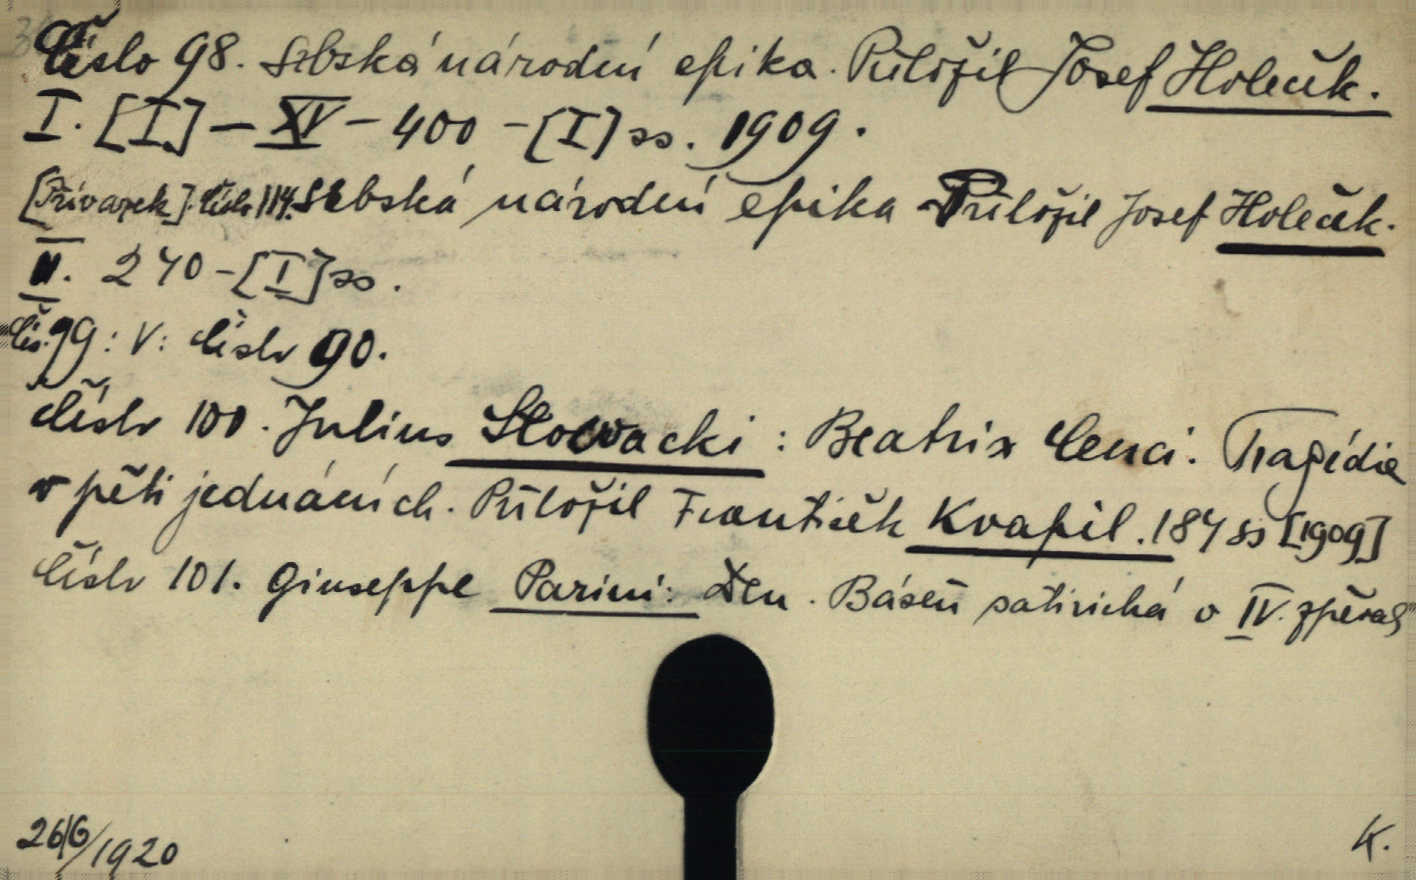 Číslo 98. Srbská národní epika. Přeložil Josef Holeček.
I. [I] – XV – 400 – [I] ss. 1909.
[Přívazek]. Číslo 114. Srbská národní epika Přeložil Josef Holeček.
II. 270 – [I] ss.
Čís. 99: V: Číslo 90.
Číslo 100. Julius Słowacki: Beatrix Cenci. Tragédie
v pěti jednáních. Přeložil František Kvapil. 187 ss [1909]
Číslo 101. Giuseppe Parini: Den. Báseň satirická o IV. zpěvech
26/6/1920
K.